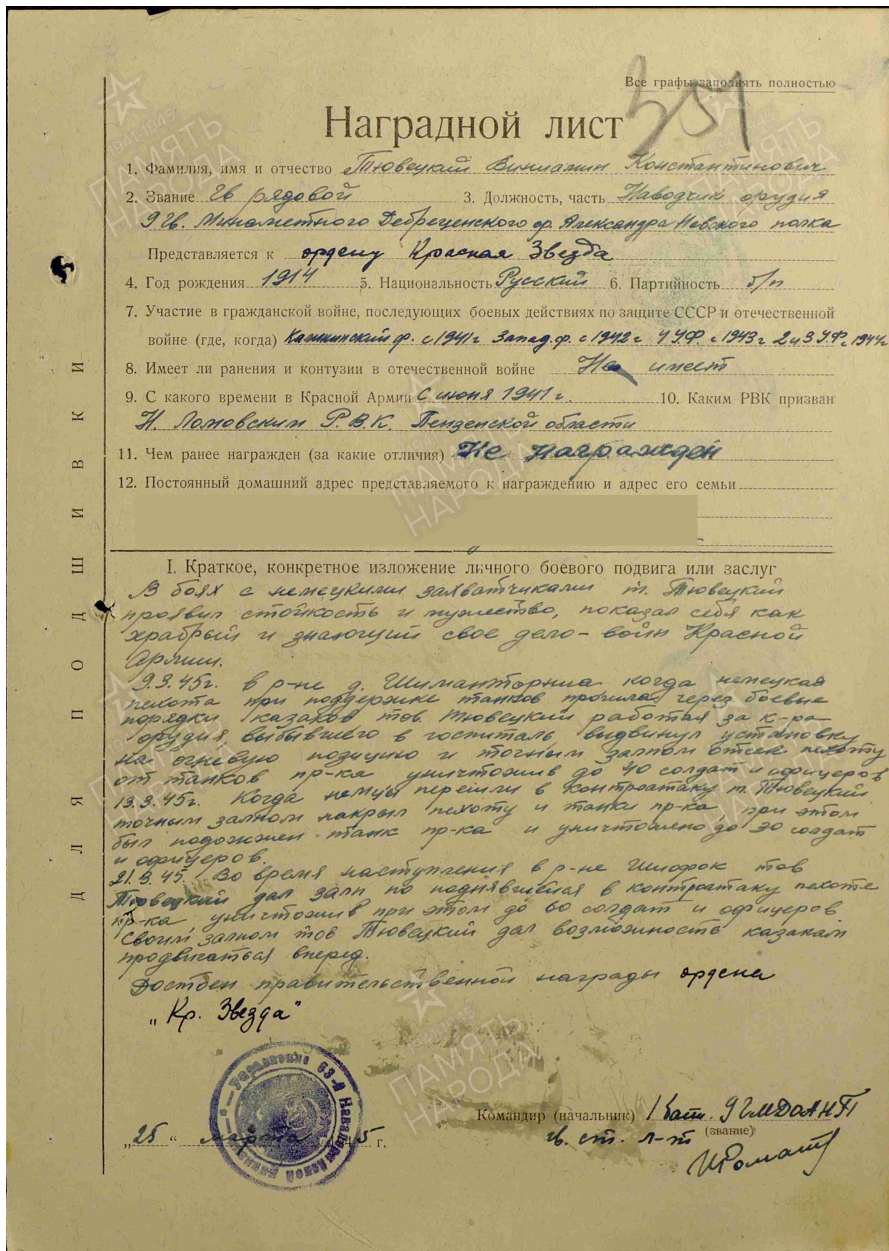 Все графы заполнять полностью
351
Наградной лист
1. Фамилия, имя и отчество Тювецкий Виниамин Константинович
2. Звание Гв рядовой 3. Должность, часть Наводчик орудия
9 гв. Минометного Дебреценского ор. Александра Невского полка
Представляется к ордену Красная Звезда
4. Год рождения 1914 5. Национальность Русский 6. Партийность б/п
7. Участие в гражданской войне, последующих боевых действиях по защите СССР и отечественной
войне (где, когда) Калининский ф. с 1941г Запад. ф. с 1942г 4 УФ с 1943г 2 и 3 УФ с 1944г
8. Имеет ли ранения и контузии в отечественной войне Не имеет
9. С какого времени в Красной Армии С июня 1941г. 10. Каким РВК призван
Н. Ломовским Р.В.К. Пензенской области
11. Чем ранее награжден (за какие отличия) Не награжден
12. Постоянный домашний адрес представляемого к награждению и адрес его семьи
I. Краткое, конкретное изложение личного боевого подвига или заслуг
В боях с немецкими захватчиками т. Тювецкий
проявил стойкость и мужество, показал себя как
храбрый и знающий свое дело - войн Красной
Армии.
9.3.45г. в р-не д. Шимонторниа когда немецкая
пехота при поддержке танков прошла через боевые
порядки казаков тов Тювецкий работая за к-ра
орудия, выбывшего в госпиталь выдвинул установку
на огневую позицию и точным залпом отсек пехоту
от танков пр-ка уничтожив до 40 солдат и офицеров
13.3.45г. Когда немцы перешли в контратаку т. Тювецкий
точным залпом накрыл пехоту и танки пр-ка, при этом
был подожжен танк пр-ка и уничтожено до 30 солдат
и офицеров.
21.3.45 Во время наступления в р-не Шиофок тов
Тювецкий дал залп по поднявшейся в контратаку пехоте
пр-ка, уничтожив при этом до 60 солдат и офицеров
Своим залпом тов Тювецкий дал возможность казакам
продвигаться вперед.
Достоен правительственной награды ордена
„Кр. Звезда"
Управление 63-й Кавалерийской
Командир (начальник) 1 бат. 9 ГМДОАНП
(звание)
гв. ст. л-т
„25" марта 1945 г.
ДЛЯ ПОДШИВКИ
1941-1945
ПАМЯТЬ
НАРОДА